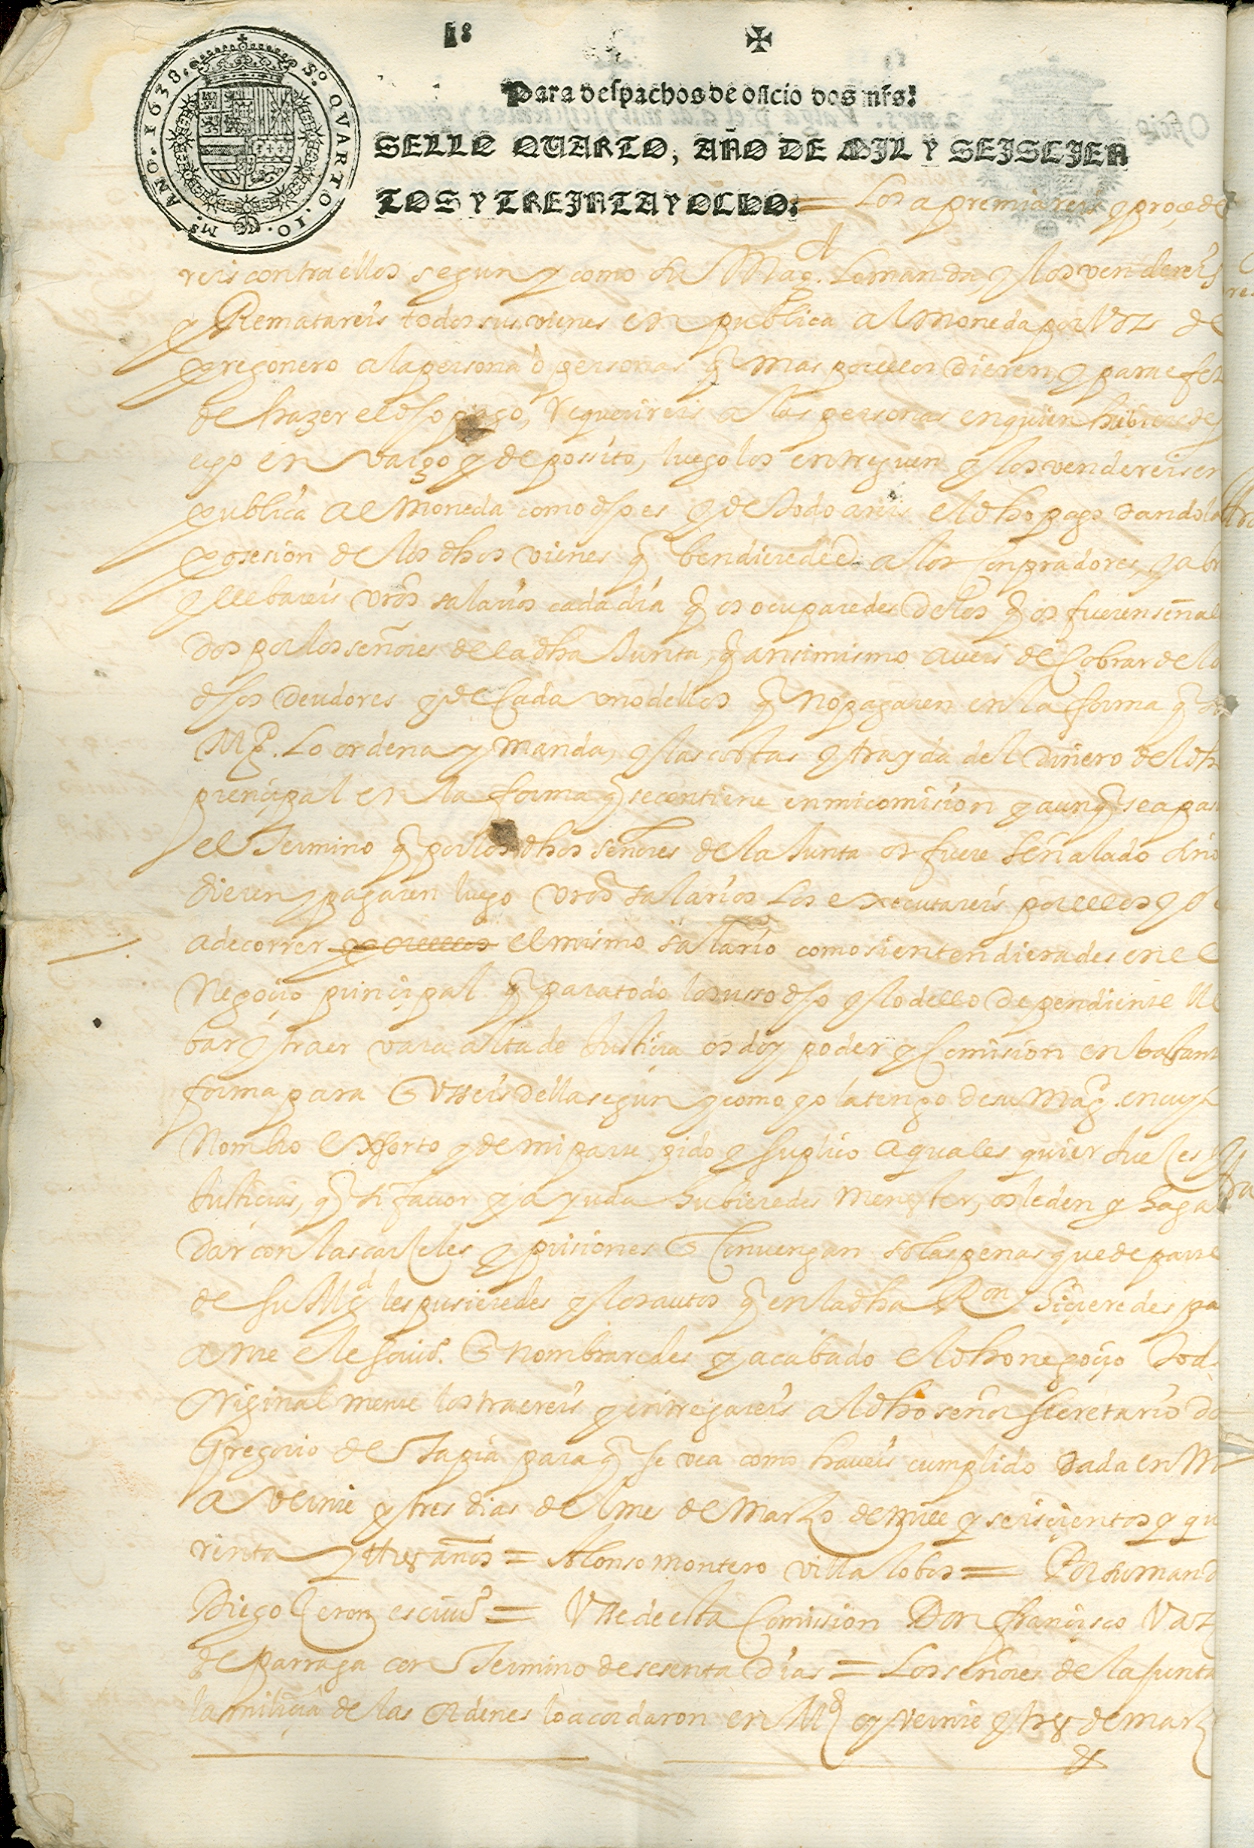 1º ✠
Para despachos de oficio dos mrs.
SELLO QVARTO, AÑO DE MIL Y SEISCIEN
TOS Y TREINTA Y OCHO.
SºQVARTO.10.Mˢ.AÑO.1638.
= Los apremiareis y procede
reis contra ellos segun y como su Magd. lo manda y los vendereis
y Rematareis todos sus vienes en publica almoneda por voz de
pregonero a la persona o personas q mas por ellos dieren, y para efec
de hazer el dho pago, Requerireis a las personas en quien hubieredes
en vargo y de possito, luego los entreguen y los vendereis en
publica almoneda como dho es y de todo areis el dho pago dandola
posesion de los dhos vienes q bendieredes a los conpradores,
y llebareis vros salarios cada dia q os ocuparedes Dellos q os fueren señala
dos por los señores de la dha Junta, q ansimismo aveis de cobrar de lo
dhos Deudores y de cada uno dellos q no pagaren en la forma q su
Mgd. lo ordena y manda, y las costas y trayda del Dinero del dh
prencipal en la forma q se contiene en mi comision y aunq sea pas
el Termino q por los dhos señores de la Junta os fuere señalado sino
dieren y pagaren luego vros salarios los executareis por ellos y
a de correr el mismo salario como si entendierades en el
Negoçio prinçipal q para todo lo suso dho y lo dello dependiente lle
bar y traer vara alta de Justiçia os doy poder y comision en bastan
forma para q vseis della segun y como yo la tengo de su Magd. en cuyo
Nombre exsorto y de mi parte pido y suplico a quales quier Jueces y
Justicias, q si favor y ayuda hubieredes menester, os le den y haga
Dar con las carceles y prisiones q convengan so las penas que de parte
de su Mgd les pusieredes y los autos q en la dha Ron hiçieredes pa
ante el escrivo. q nombraredes y acabado el dho negoçio tod
originalmente los traereis y entregareis al dho señor secretario Do
Gregorio de Tapia para q se vea como haveis cumplido Dada en M
a veinte y tres dias del mes de Março de mill y seisçientos y qu
renta y tres años = Alonso montero villalobos = Por su mando
Diego Çeron escrivo = Vsse de esta Comission Don françisco Vaz
de parraga con Termino de sesenta Dias = Los señores de la Junta
la miliçia de las ordenes lo acordaron en Md y veinte y tres de março